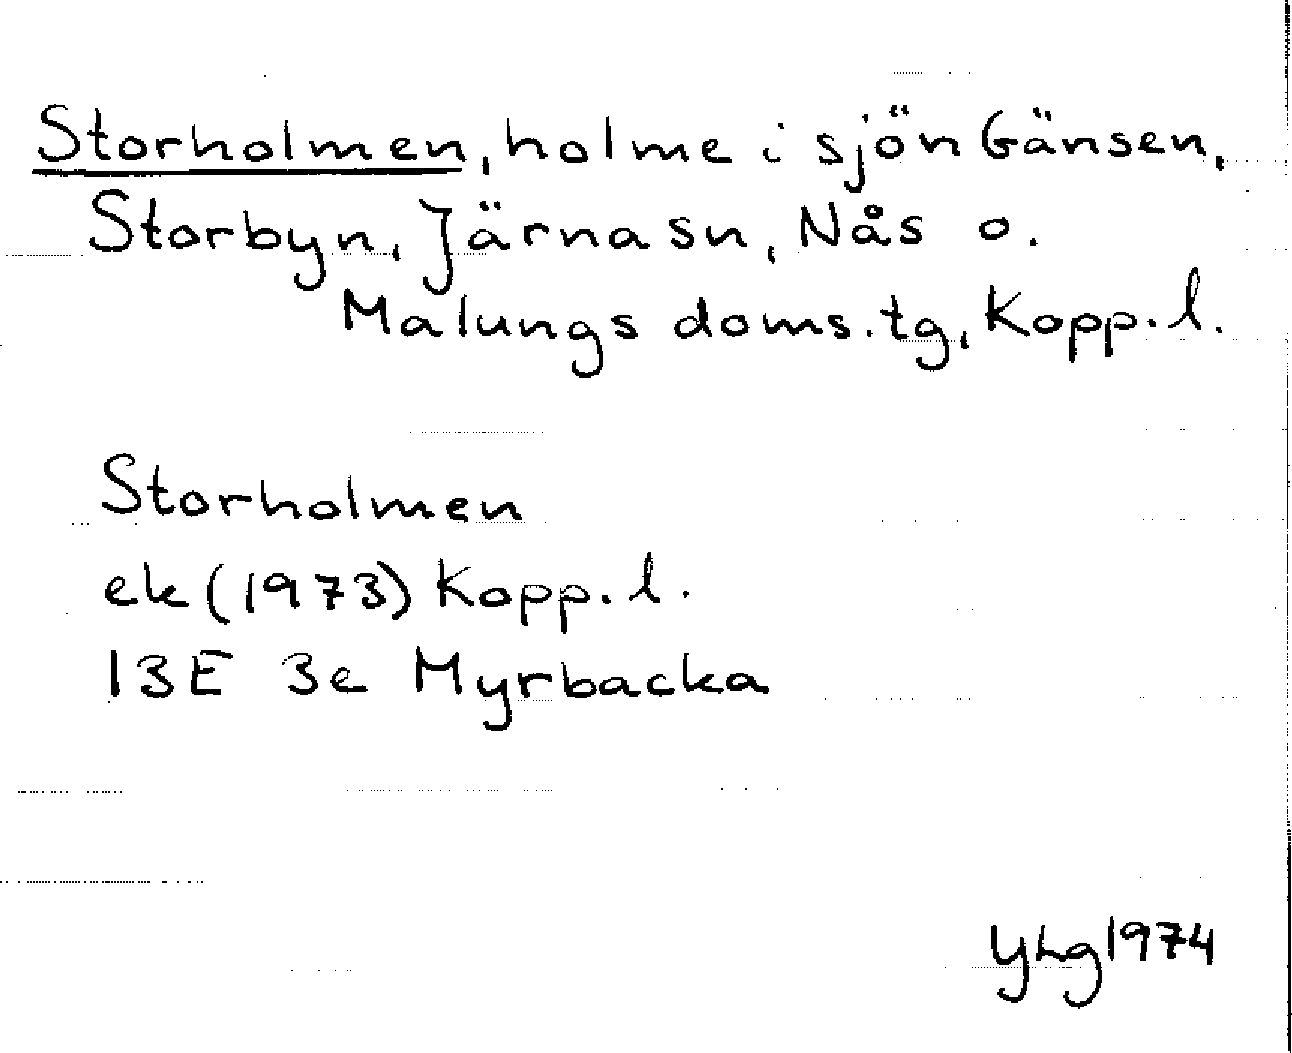 Storholmen, holme i sjön Gänsen,
Storbyn, Järna sn, Nås o.
Malungs doms.tg, Kopp. l.
Storholmen
ek (1973) Kopp. l.
13E 3e Myrbacka
YLg 1974